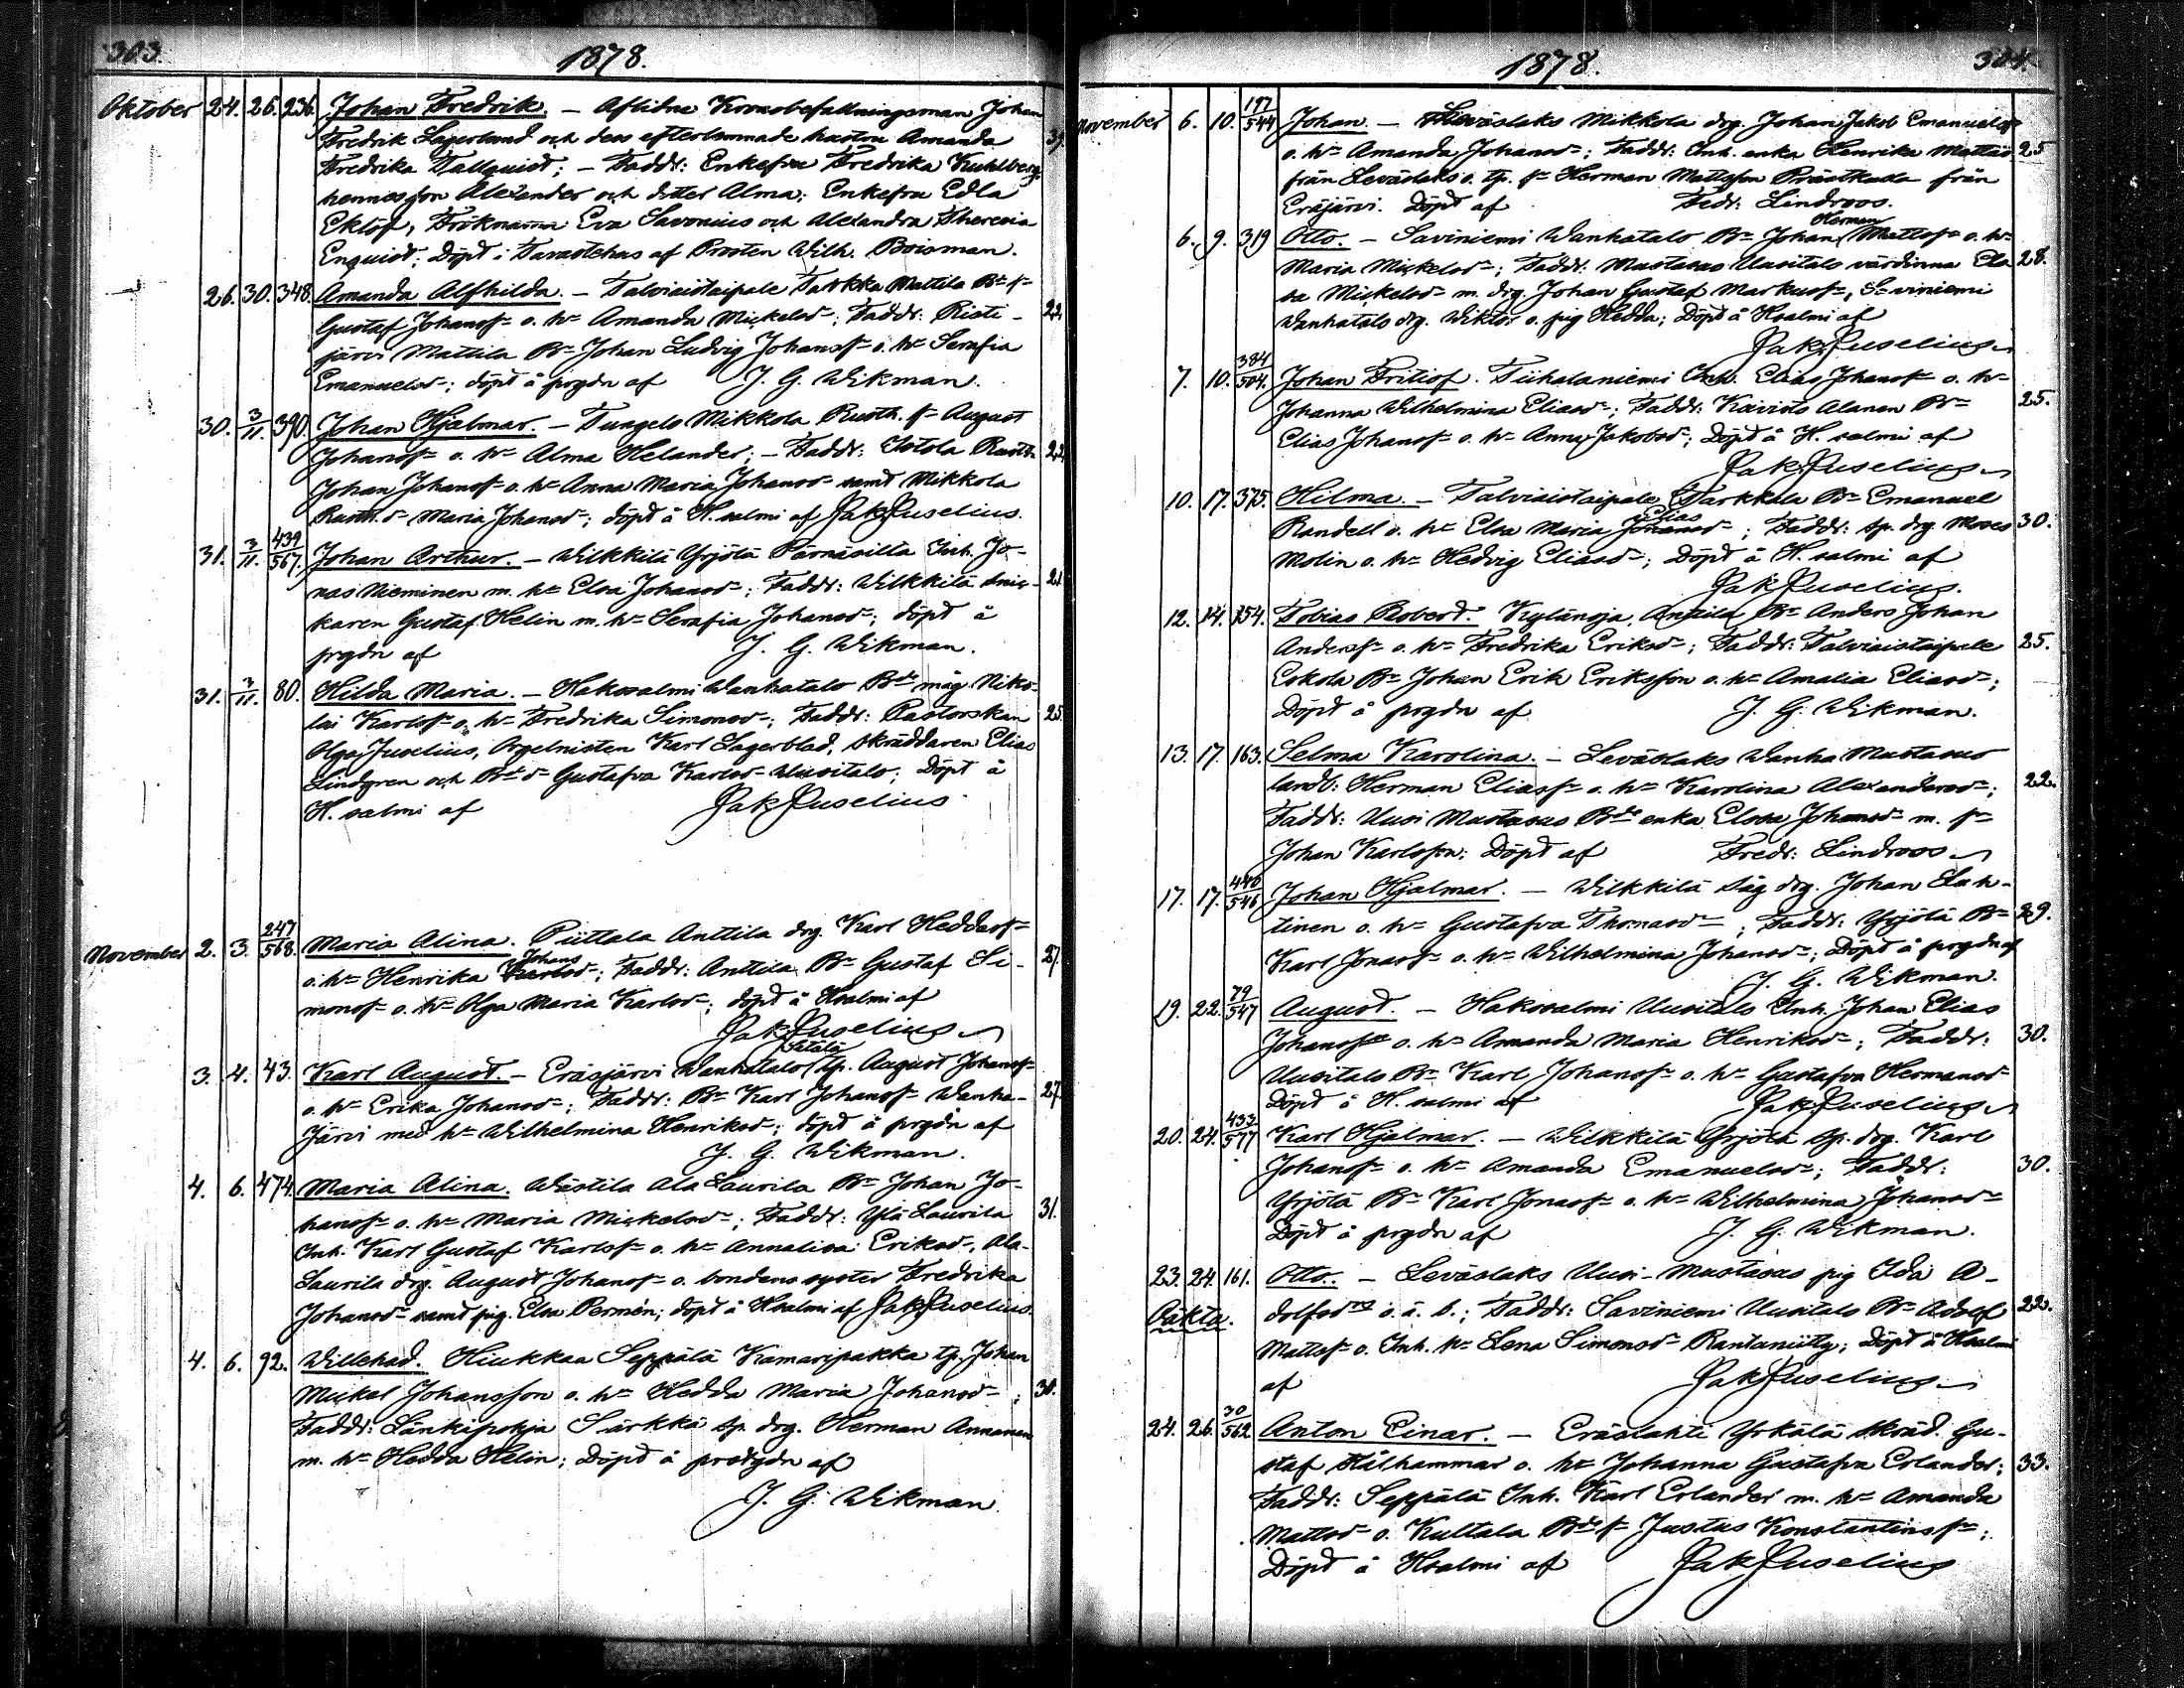 303.
1878.
Oktober 24. 26. 236. Johan Fredrik. — Aflidne Kronobefallningsman Johan
Fredrik Lagerlund och dess efterlemnade hustru Amanda 39.
Fredrika Tallquist; — Faddr: Enkefru Fredrika Kuhlberg,
hennes son Alexander och dotter Alma; Enkefru Edla
Eklöf, Fröknarna Eva Savonius och Alexandra Theresia
Enquist; Döpt i Tavastehus af Prosten Wilh. Boisman.
26. 30. 348. Amanda Alfhilda. — Talviaistaipale Tarkka Mattila Bd s-
Gustaf Johans- o. h- Amanda Mickelsd-; Faddr: Risti- 22.
järvi Mattila B- Johan Ludvig Johans- o. h- Serafia
Emanuelsd-; döpt å prgdn af J. G. Wikman.
30. 3/11. 390. Johan Hjalmar. — Tuagelo Mikkola Rusth. s- August
Johans- o. h- Alma Helander; — Faddr: Isotola Rusth-
Johan Johans- o. h- Anna Maria Johansd- samt Mikkola
Rusth. d- Maria Johansd-; döpt å H.salmi af Jak Juselius.
31. 3/11. 439/567. Johan Arthur. — Wilkkilä Yrjölä Pärnäsilta Inh. Jo-
nas Nieminen m. h- Elsa Johansd-; Faddr: Wilkkilä snic- 21
karen Gustaf Helin m. h- Serafia Johansd-; döpt å
prgdn af J. G. Wikman.
31. 3/11. 80. Hilda Maria. — Hakosalmi Wanhatalo Bds måg Niko-
lai Karls- o. h- Fredrika Simonsd-; Faddr: Pastorskan 25.
Olga Juselius, Orgelnisten Karl Lagerblad, skräddaren Elias
Lindgren och Bd d- Gustafva Karlsd- Uusitalo; Döpt å
H. salmi af Jak Juselius
November 2. 3. 247/568. Maria Alina. Piittala Anttila drg. Karl Heddas-
Johans
o. h- Henrika Karlsd-; Faddr: Anttila B- Gustaf Si- 27.
mons- o. h- Olga Maria Karlsd-; döpt å Hsalmi af
Jak Juselius
Sätälä
3. 4. 43. Karl August. — Eräsjärvi Wanhatalo tp. August Johans-
o. h- Erika Johansd-; Faddr: B- Karl Johans- Wanha- 27.
järvi med h- Wilhelmina Henriksd-; döpt å prgdn af
J. G. Wikman.
4. 6. 474. Maria Alina. Wästilä Ala Laurila B- Johan Jo-
hans- o. h- Maria Mickelsd-; Faddr: Ylä Laurila 31.
Inh. Karl Gustaf Karls- o. h- Annaliisa Eriksd-, Ala-
Laurila drg. August Johans- o. bondens syster Fredrika
Johansd- samt pig. Elsa Permén; döpt å Hsalmi af Jak Juselius.
4. 6. 92. Willehad. Hiukkaa Seppälä Kamaripakka tp. Johan
Mickel Johansson o. h- Hedda Maria Johansd-; 30.
Faddr: Länkipohja Särkkä sp. drg. Herman Annanen
m. h- Hedda Helin; Döpt å prstgdn af
J. G. Wikman.
1878.
304.
November 6. 10. 197/544 Johan. — Leväslaks Mikkola drg. Johan Jakob Emanuels-
o. h- Amanda Johansd-; Faddr: Inh. enka Henrika Mattsd- 25
från Leväslaks o. tp. s- Herman Mattsson Präntkada från
Eräjärvi. Döpt af Fedr: Lindroos.
Herman
6. 9. 319 Otto. — Saviniemi Wanhatalo B- Johan Matts- o. h-
Maria Mickelsd-; Faddr: Mustasus Uusitalo värdinna Elo 28.
sa Mickelsd- m. drg. Johan Gustaf Markus-, Saviniemi
Wanhatalo drg. Wiktor o. pig Hedda; Döpt å Hsalmi af
Jak Juselius
7. 10. 384/504. Johan Fritiof. Tiihalaniemi Inh. Elias Johans- o. h-
Johanna Wilhelmina Eliasd-; Faddr: Koivisto Alanen B- 25.
Elias Johans- o. h- Anna Jakobsd-; Döpt å H. salmi af
Jak Juselius
10. 17. 375. Hilma. — Talviaistaipale Tarkkala B- Emanuel
Elias
Randell o. h- Elsa Maria Johansd-; Faddr: sp. drg. Moses 30.
Molin o. h- Hedvig Eliasd-; Döpt å H. salmi af
Jak Juselius.
12. 14. 154. Tobias Robert. Kylänoja Anttila B- Anders Johan
Anders- o. h- Fredrika Eriksd-; Faddr: Talviaistaipale 25.
Eskola B- Johan Erik Eriksson o. h- Amalia Eliasd-;
Döpt å prgdn af J. G. Wikman.
13. 17. 163. Selma Karolina. — Leväslaks Wanha Mustasus
landb: Herman Elias- o. h- Karolina Alexandersd-; 22.
Faddr: Uusi Mustasus Bds enka Elosa Johansd- m. s-
Johan Karlsson; Döpt af Fredr: Lindroos
17. 17. 440/546 Johan Hjalmar. — Wilkkilä såg drg. Johan Lah-
tinen o. h- Gustafva Thomasd-; Faddr: Yrjölä B- 29.
Karl Jonas- o. h- Wilhelmina Johansd-; Döpt å prgdn af
J. G. Wikman.
19. 22. 79/547 August. — Hakosalmi Uusitalo Inh. Johan Elias
Johansson o. h- Amanda Maria Henriksd-; Faddr: 30.
Uusitalo B- Karl Johans- o. h- Gustafva Hermansd-
Döpt å H. salmi af Jak Juselius
20. 24. 433/577 Karl Hjalmar. — Wilkkilä Yrjölä sp. drg. Karl
Johans- o. h- Amanda Emanuelsd-; Faddr: 30.
Yrjölä B- Karl Jonas- o. h- Wilhelmina Johansd-
Döpt å prgdn af J. G. Wikman.
23. 24. 161. Otto. — Leväslaks Uusi-Mustasus pig Ida A-
Oäkta. dolfsd o. ä. b.; Faddr: Saviniemi Uusitalo B- Adolf 22.
Matts- o. Inh. h- Lena Simonsd- Rantaniitty; Döpt å Hsalmi
af Jak Juselius
24. 26. 30/562 Anton Einar. — Eräslahti Yrkälä skräd. Gu-
staf Stålhammar o. h- Johanna Gustafva Erlander; 33.
Faddr: Seppälä Inh. Karl Erlander m. h- Amanda
Mattsd- o. Kultala Bds s- Justus Konstantins-;
Döpt å Hsalmi af Jak Juselius